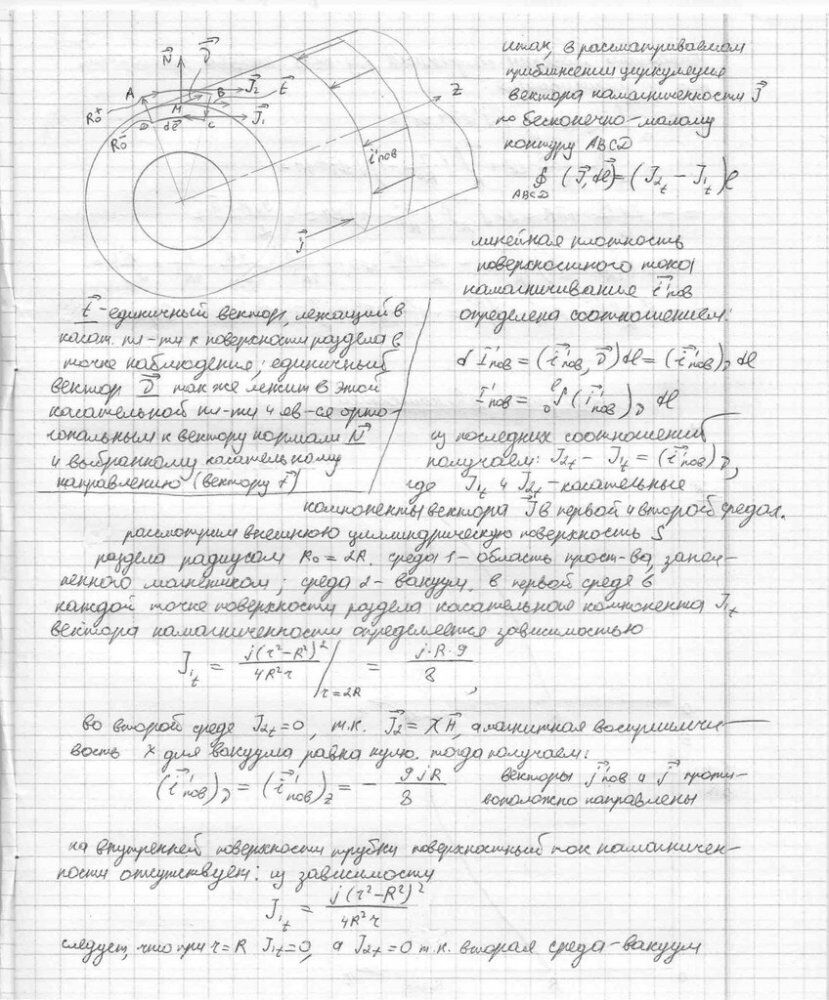 итак, в рассматриваемом
приближении циркуляция
вектора намагниченности J⃗
по бесконечно-малому
контуру ABCD
∮ (J⃗, dℓ⃗) = (J₂t − J₁t)ℓ
ABCD
N⃗ ν⃗ J⃗₂ t⃗
A B Z
R₀⁺ M J⃗₁
R₀⁻ D dℓ⃗ C
i'пов
j⃗
линейная плотность
поверхностного тока
намагничивание i⃗'пов
определена соотношением:
d I'пов = (i⃗'пов, ν⃗) dℓ = (i⃗'пов)ν dℓ
I'пов = ₀∫ℓ (i⃗'пов)ν dℓ
из последних соотношений
получаем: J₂t − J₁t = (i⃗'пов)ν,
где J₁t и J₂t - касательные
t⃗ - единичный вектор, лежащий в
касат. пл-ти к поверхности раздела в
точке наблюдения; единичный
вектор ν⃗ так же лежит в этой
касательной пл-ти и яв-ся орто-
гональным к вектору нормали N⃗
и выбранному касательному
направлению (вектору t⃗)
компоненты вектора J⃗ в первой и второй средах.
рассмотрим внешнюю цилиндрическую поверхность S
раздела радиусом R₀ = 2R. среда 1 - область прост-ва, запол-
ненного магнетиком; среда 2 - вакуум. в первой среде в
каждой точке поверхности раздела касательная компонента J₁t
вектора намагниченности определяется зависимостью
J₁t = j(r²−R²)²/4R²r |r=2R = j·R·9/8,
во второй среде J₂t=0, т.к. J⃗₂ = χH⃗, а магнитная восприимчи-
вость χ для вакуума равна нулю. тогда получаем:
(i⃗'пов)ν = (i⃗'пов)z = − 9jR/8 векторы j⃗'пов и j⃗ проти-
воположно направлены
на внутренней поверхности трубки поверхностный ток намагничен-
ности отсутствует: из зависимости
J₁t = j(r²−R²)²/4R²r
следует, что при r=R J₁t=0, а J₂t=0 т.к. вторая среда - вакуум